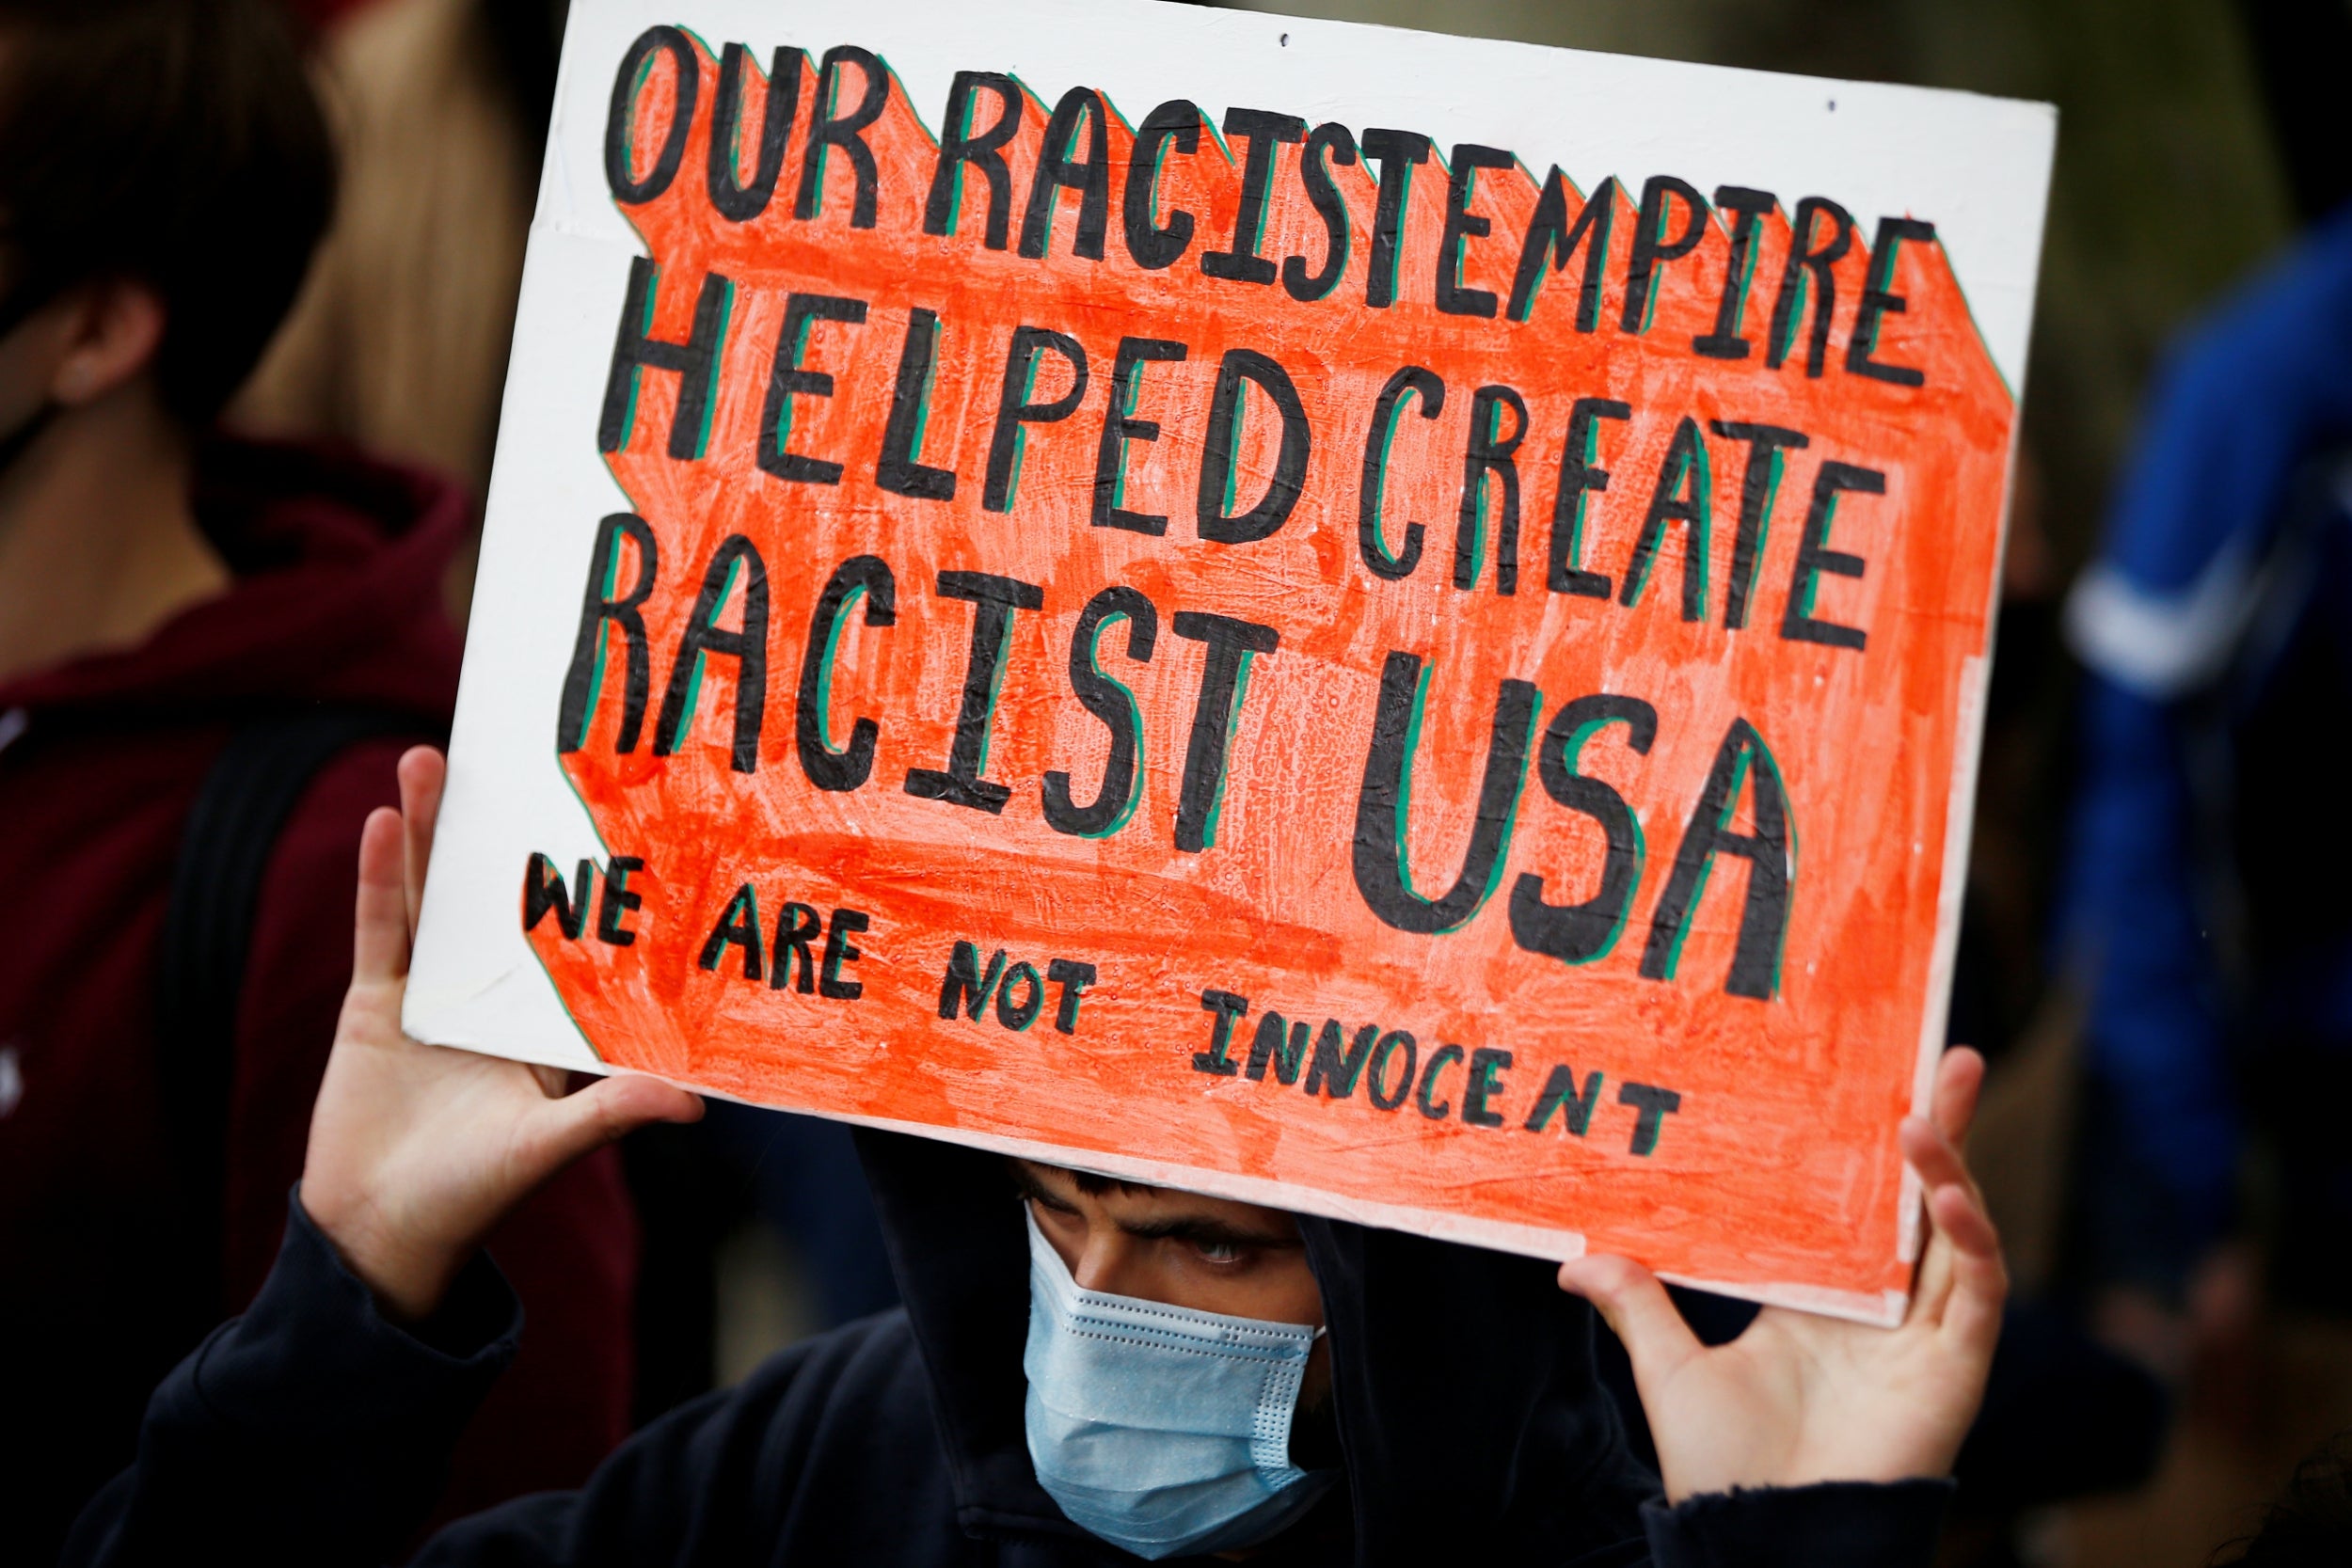 OUR RACIST EMPIRE
HELPED CREATE
RACIST USA
WE ARE NOT INNOCENT